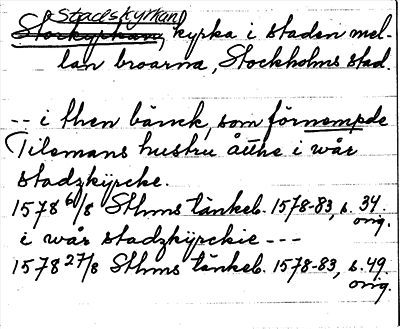 Stadskyrkan
Storkyrkan, kyrka i staden mel-
lan broarna, Stockholms stad.
-- i then bänck, som förnempde
Tilemans hustru åtthe i wår
stadzkÿrcke.
1578 6/8 Sthms tänkeb. 1578-83, s. 34.
orig.
i wår stadzkÿrckie ---
1578 27/8 Sthms tänkeb. 1578-83, s. 49.
orig.